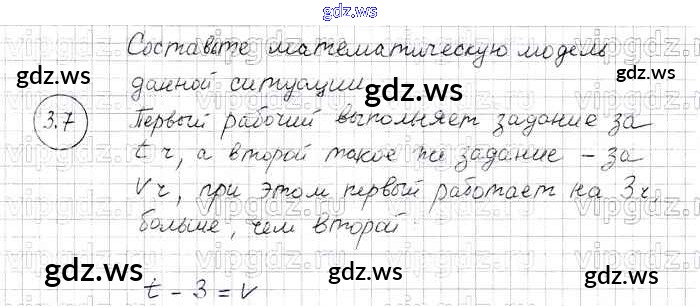 gdz.ws
Составьте математическую модель
данной ситуации
gdz.ws
gdz.ws
3.7
Первый рабочий выполняет задание за
t ч, а второй такое же задание - за
v ч, при этом первый работает на 3ч.
больше, чем второй
gdz.ws
gdz.ws
gdz.ws
t - 3 = v